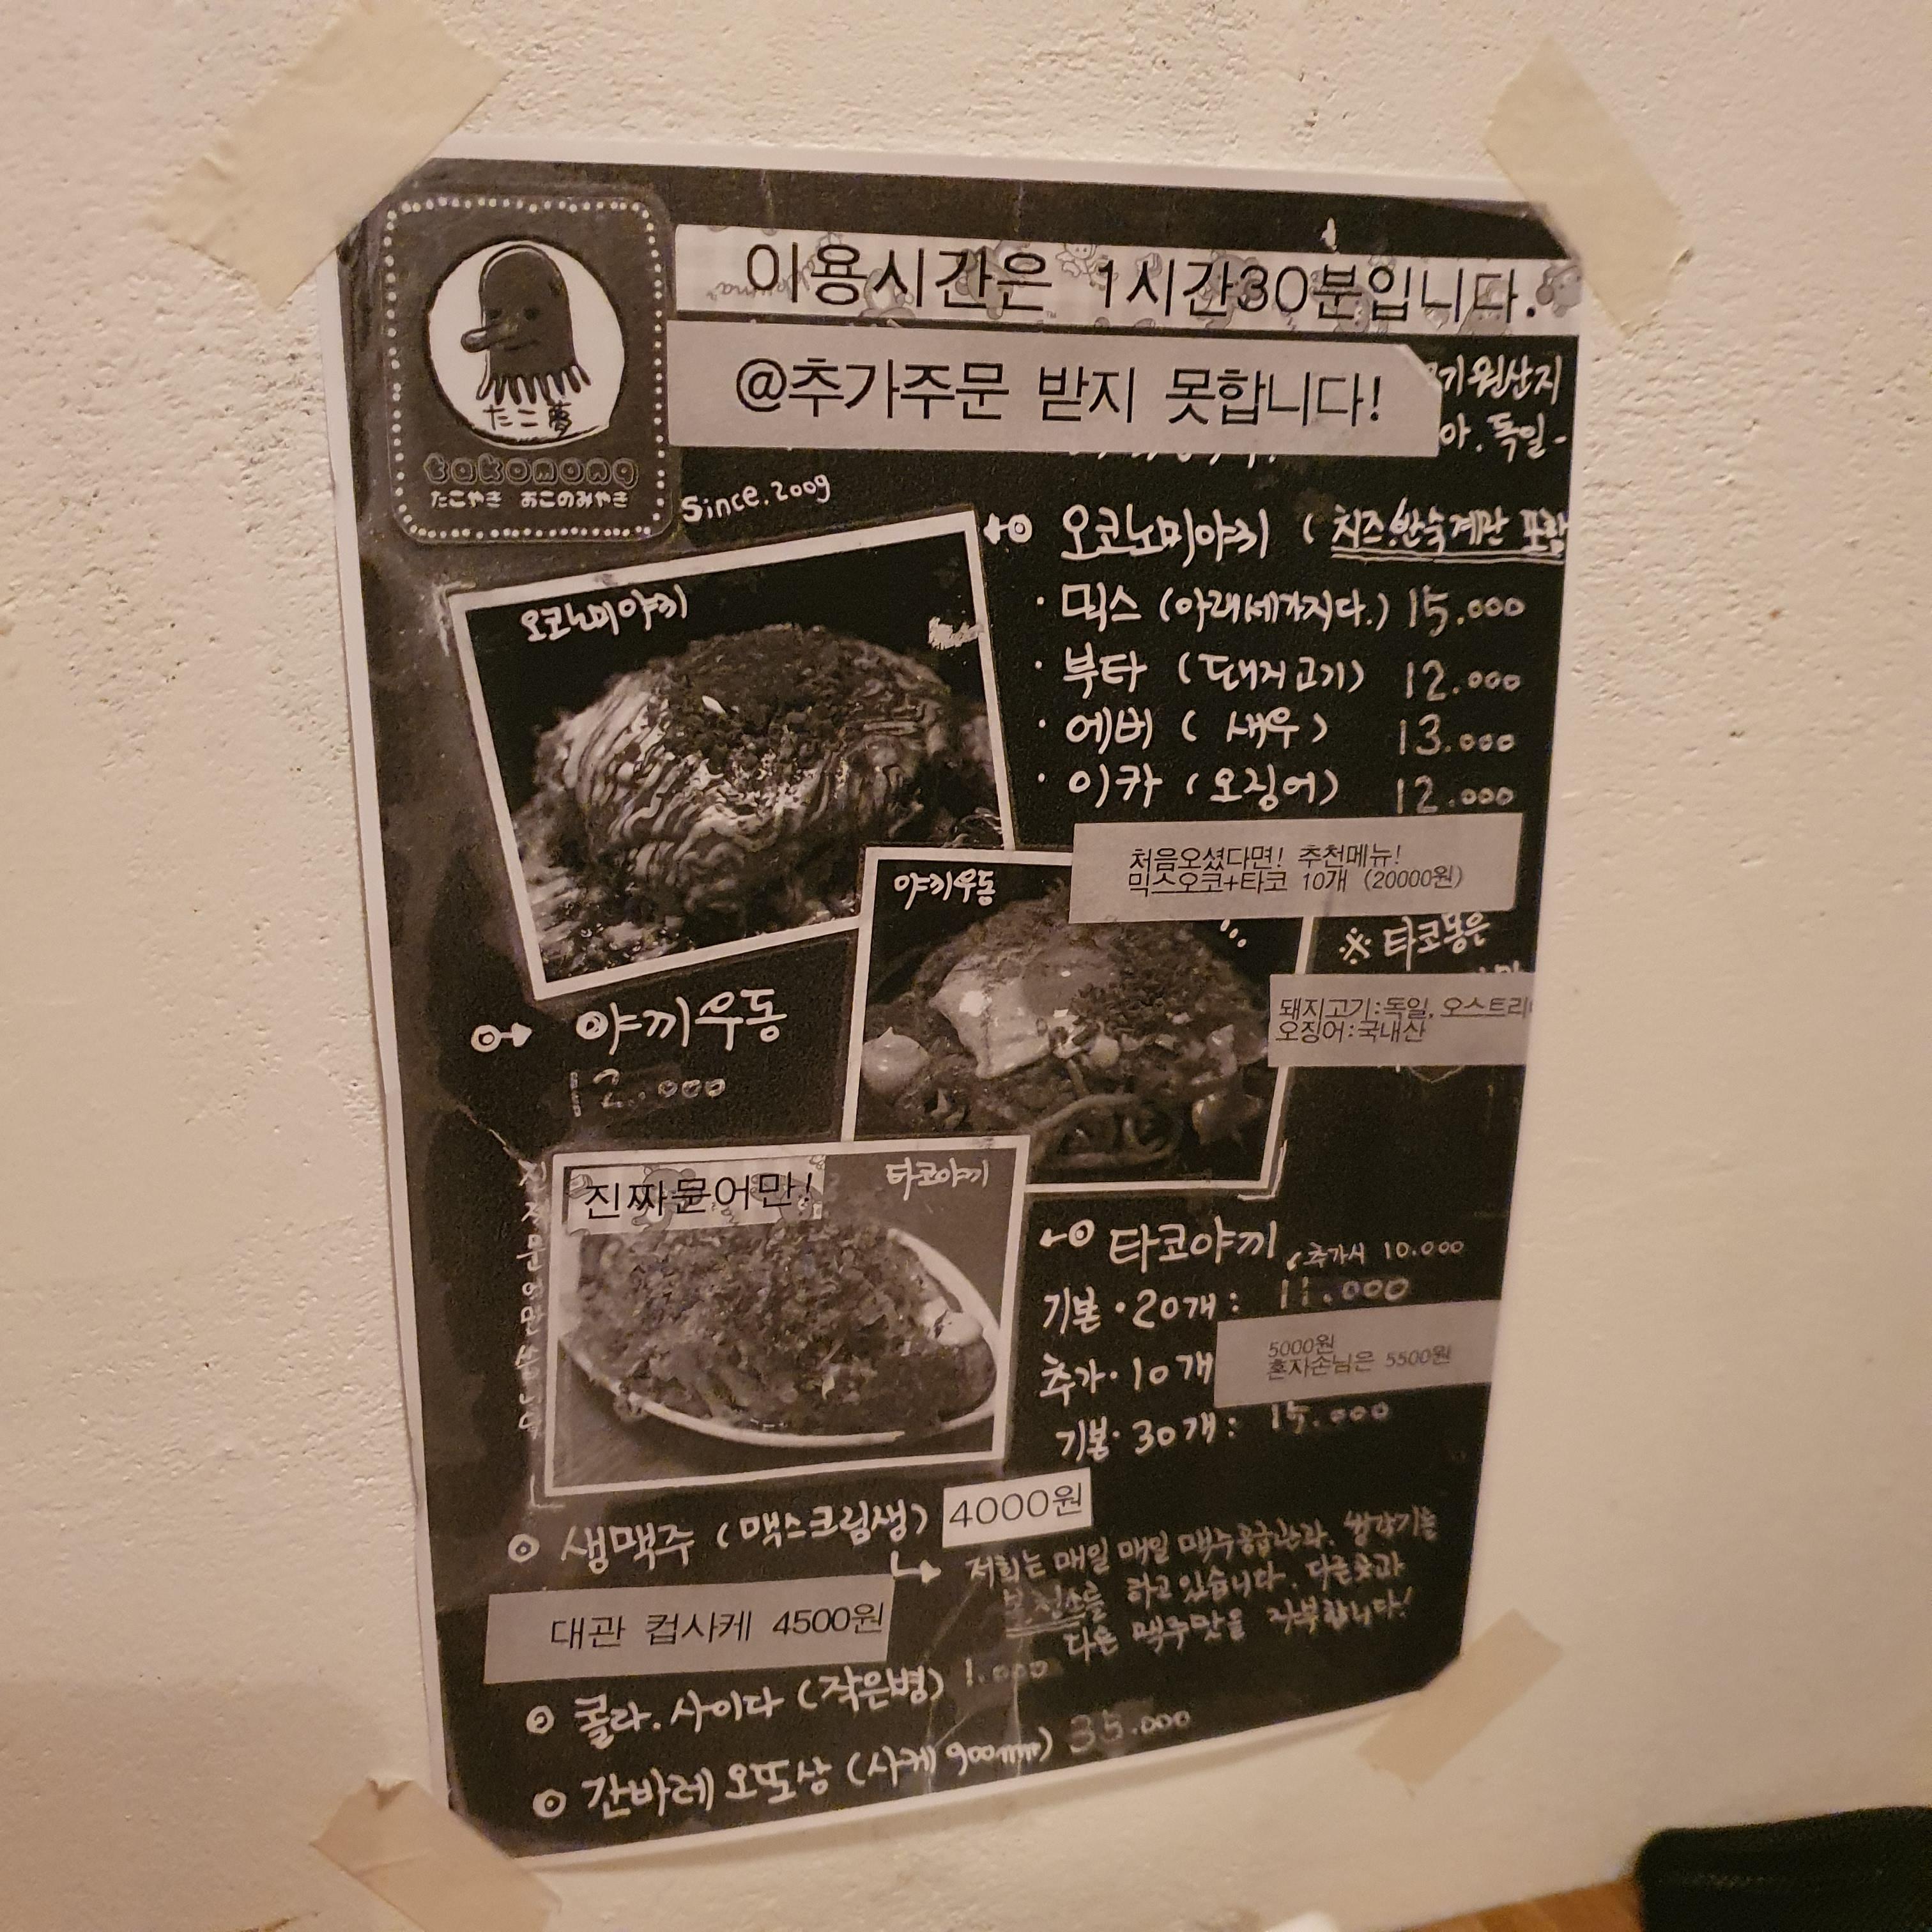 이용시간은 1시간30분입니다.
@추가주문 받지 못합니다!
기원산지
아. 독일-
たこ夢
takomong
たこやき おこのみやき
Since.2009
오코노미야키 (치즈.반숙계란 포함
오코노미야끼
· 믹스 (아래세가지다.) 15.000
· 부타 (돼지고기) 12.000
· 에비 (새우) 13.000
· 이카 (오징어) 12.000
처음오셨다면! 추천메뉴!
믹스오코+타코 10개 (20000원)
야끼우동
※ 타코몽은
돼지고기:독일, 오스트리
오징어:국내산
야끼우동
12.000
진짜문어만!
타코야끼
타코야끼
추가시 10.000
기본·20개: 11.000
5000원
혼자손님은 5500원
추가·10개
기본·30개: 15.000
생맥주 (맥스크림생) 4000원
저희는 매일 매일 맥주공급관과.
청소를 하고있습니다. 다른곳과
다른 맥주맛을 자부합니다!
대관 컵사케 4500원
콜라.사이다 (작은병) 1.000
간바레 오또상 (사케 900mm) 35.000